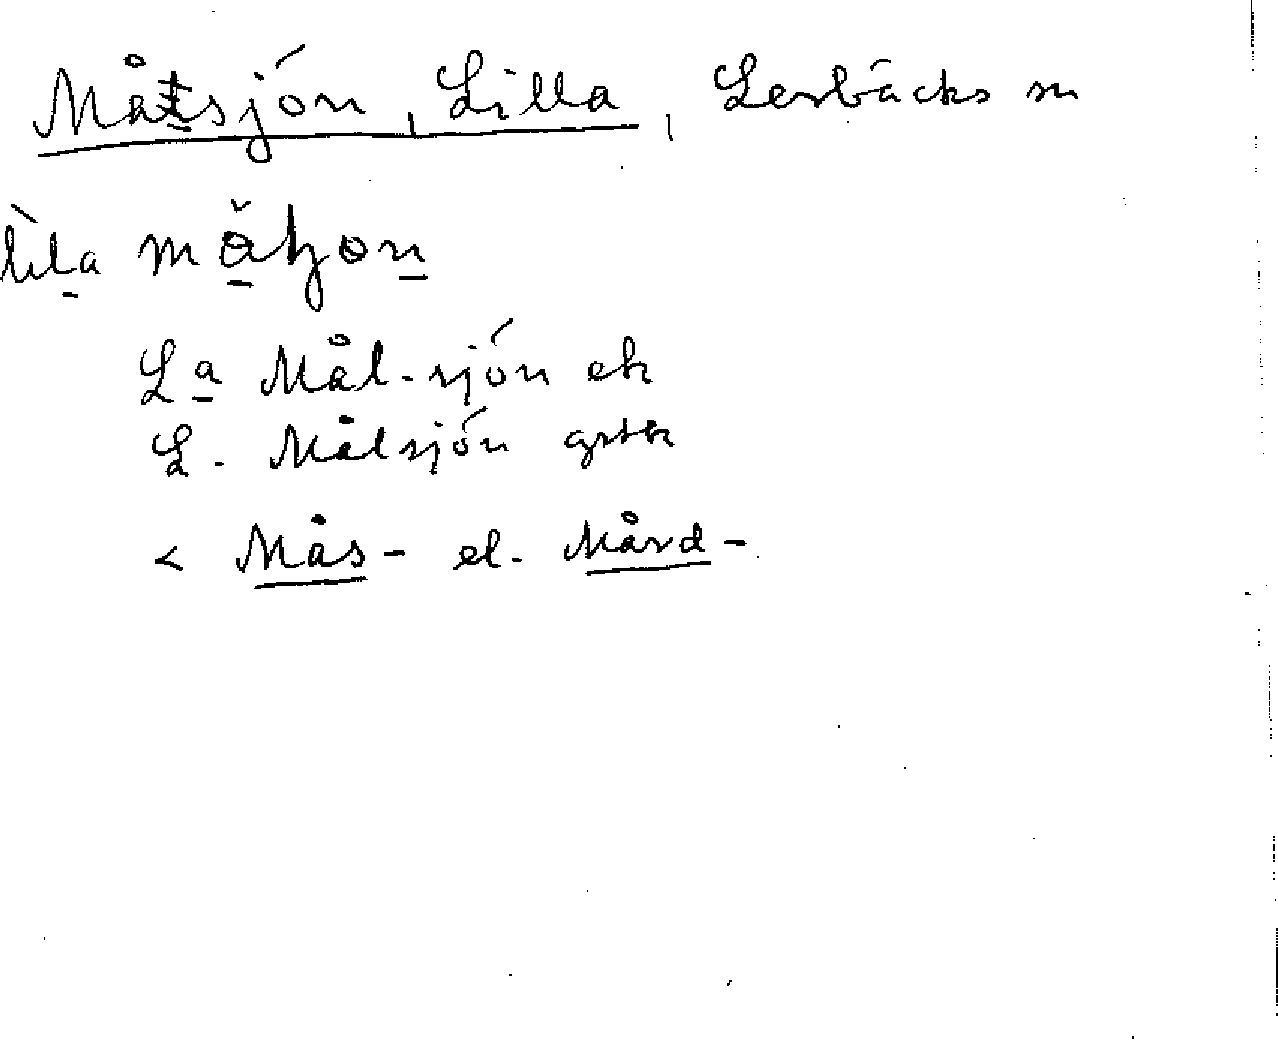 Måtsjön, Lilla, Lerbäcks sn
L<u>a</u> Mål-sjön ek
L. Målsjön gstk
< Mås- el. Mård-